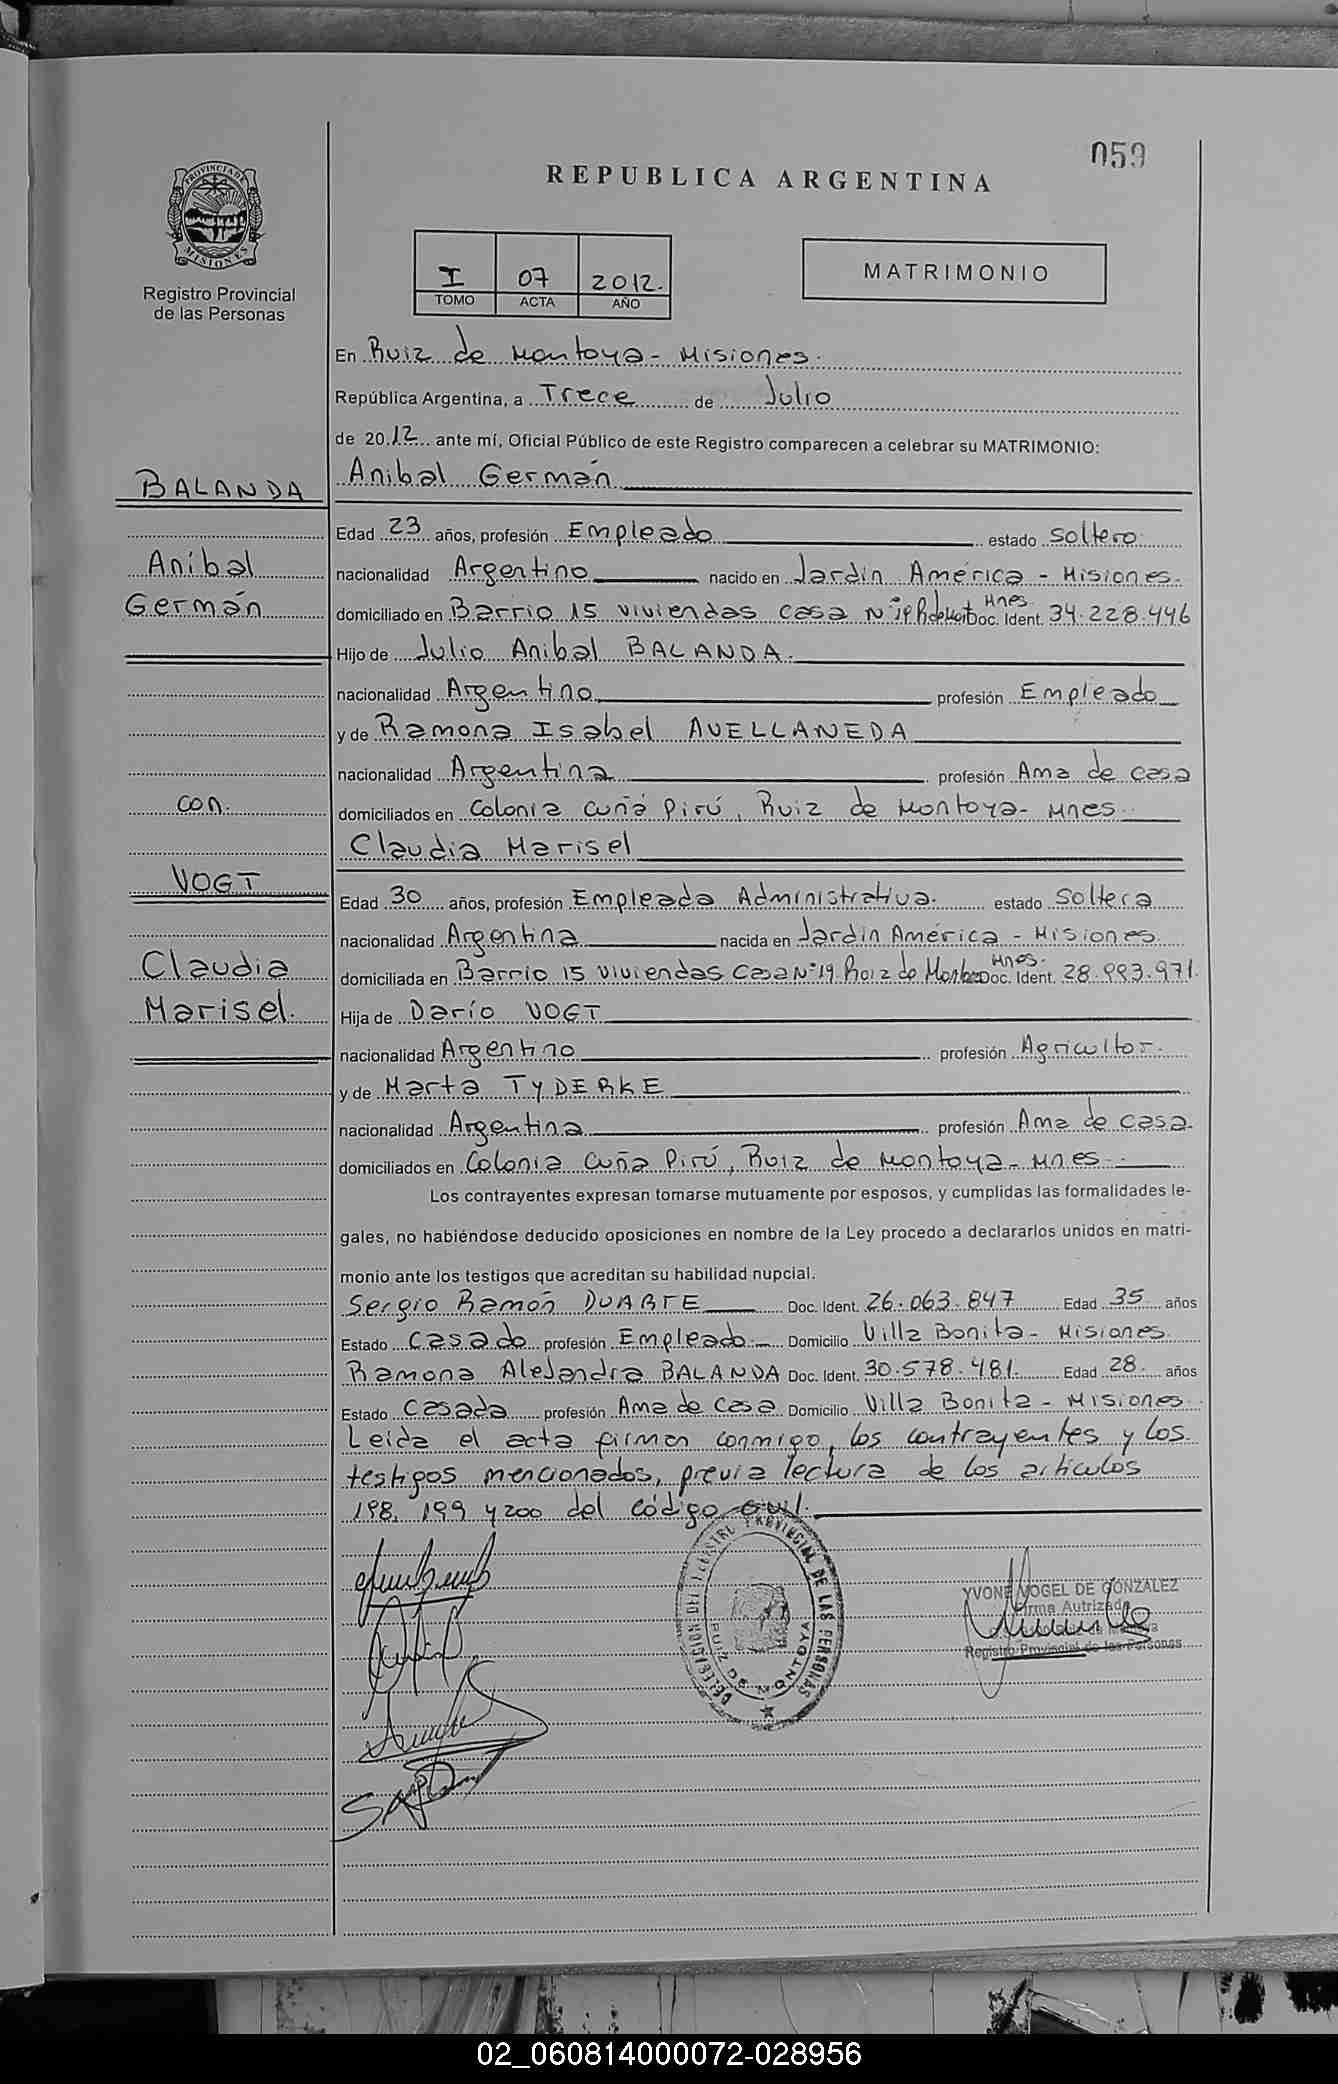 059
REPUBLICA ARGENTINA
PROVINCIA DE
MISIONES
Registro Provincial
de las Personas
I 07 2012.
TOMO ACTA AÑO
MATRIMONIO
En Ruiz de Montoya - Misiones.
República Argentina, a Trece de Julio
de 2012 ante mí, Oficial Público de este Registro comparecen a celebrar su MATRIMONIO:
BALANDA
Anibal Germán
Edad 23 años, profesión Empleado estado Soltero
Aníbal
nacionalidad Argentino nacido en Jardín América - Misiones.
Germán
domiciliado en Barrio 15 viviendas casa N° 19 R de Mont Mnes Doc. Ident. 34.228.446
Hijo de Julio Anibal BALANDA.
nacionalidad Argentino profesión Empleado
y de Ramona Isabel AVELLANEDA
nacionalidad Argentina profesión Ama de casa
con.
domiciliados en Colonia Cuñá Pirú, Ruiz de Montoya - Mnes.
Claudia Marisel
VOGT
Edad 30 años, profesión Empleada Administrativa. estado Soltera
nacionalidad Argentina nacida en Jardín América - Misiones.
Claudia
domiciliada en Barrio 15 viviendas Casa N° 19. Ruiz de Mnes. Doc. Ident. 28.993.971.
Marisel.
Hija de Darío VOGT
nacionalidad Argentino profesión Agricultor.
y de Marta TYDERKE
nacionalidad Argentina profesión Ama de casa.
domiciliados en Colonia Cuña Pirú, Ruiz de Montoya - Mnes.
Los contrayentes expresan tomarse mutuamente por esposos, y cumplidas las formalidades le-
gales, no habiéndose deducido oposiciones en nombre de la Ley procedo a declararlos unidos en matri-
monio ante los testigos que acreditan su habilidad nupcial.
Sergio Ramón DUARTE Doc. Ident. 26.063.847 Edad 35 años
Estado Casado profesión Empleado Domicilio Villa Bonita - Misiones
Ramona Alejandra BALANDA Doc. Ident. 30.578.481. Edad 28. años
Estado Casada profesión Ama de Casa Domicilio Villa Bonita - Misiones.
Leida el acta firman conmigo, los contrayentes y los
testigos mencionados, previa lectura de los artículos
198, 199 y 200 del código civil.
DELEGACION DEL REGISTRO PROVINCIAL DE LAS PERSONAS
RUIZ DE MONTOYA
YVONE VOGEL DE GONZALEZ
Firma Autrizada
Registro Provincial de las Personas
02_060814000072-028956